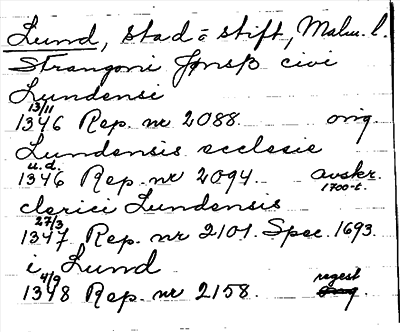 Lund, stad o stift, Malm. l.
Strangoni Jonsß civi
Lundensi
13/11
1346 Rep. nr 2088. orig
Lundensis ecclesie
u.d.
1346 Rep. nr 2094. avskr.
1700-t.
clerici Lundensis
27/3
1347 Rep. nr 2101. Spec. 1693.
i Lund
4/9 regest
1348 Rep. nr 2158. orig.